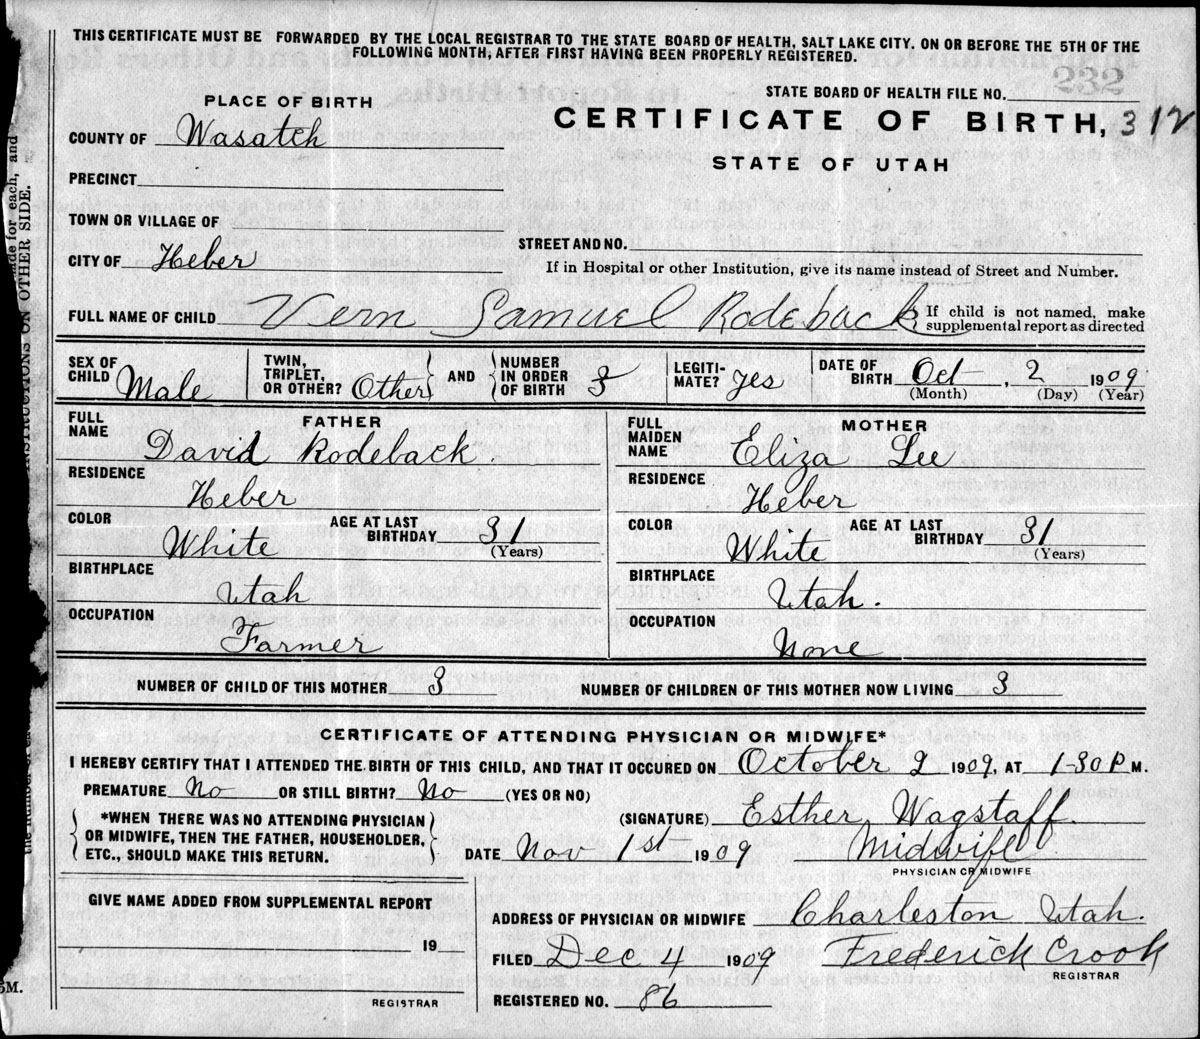 THIS CERTIFICATE MUST BE FORWARDED BY THE LOCAL REGISTRAR TO THE STATE BOARD OF HEALTH, SALT LAKE CITY, ON OR BEFORE THE 5TH OF THE
FOLLOWING MONTH, AFTER FIRST HAVING BEEN PROPERLY REGISTERED.
232
STATE BOARD OF HEALTH FILE NO.
PLACE OF BIRTH
CERTIFICATE OF BIRTH, 312
COUNTY OF Wasatch
STATE OF UTAH
PRECINCT
TOWN OR VILLAGE OF
STREET AND NO.
CITY OF Heber
If in Hospital or other Institution, give its name instead of Street and Number.
FULL NAME OF CHILD Vern Samuel Rodeback { If child is not named, make
supplemental report as directed
SEX OF CHILD Male
TWIN, TRIPLET, OR OTHER? Other } AND { NUMBER IN ORDER OF BIRTH 3
LEGITI-MATE? yes
DATE OF BIRTH Oct, 2 1909
(Month) (Day) (Year)
FATHER
FULL NAME David Rodeback.
RESIDENCE Heber
COLOR White AGE AT LAST BIRTHDAY 31 (Years)
BIRTHPLACE Utah
OCCUPATION Farmer
MOTHER
FULL MAIDEN NAME Eliza Lee
RESIDENCE Heber
COLOR White AGE AT LAST BIRTHDAY 31 (Years)
BIRTHPLACE Utah.
OCCUPATION None
NUMBER OF CHILD OF THIS MOTHER 3 NUMBER OF CHILDREN OF THIS MOTHER NOW LIVING 3
CERTIFICATE OF ATTENDING PHYSICIAN OR MIDWIFE*
I HEREBY CERTIFY THAT I ATTENDED THE BIRTH OF THIS CHILD, AND THAT IT OCCURED ON October 2 1909, AT 1-30 P M.
PREMATURE No OR STILL BIRTH? No (YES OR NO)
(SIGNATURE) Esther Wagstaff.
{ *WHEN THERE WAS NO ATTENDING PHYSICIAN
OR MIDWIFE, THEN THE FATHER, HOUSEHOLDER,
ETC., SHOULD MAKE THIS RETURN. }
DATE Nov 1st 1909 Midwife
PHYSICIAN OR MIDWIFE
GIVE NAME ADDED FROM SUPPLEMENTAL REPORT
19
REGISTRAR
ADDRESS OF PHYSICIAN OR MIDWIFE Charleston Utah.
FILED Dec 4 1909 Frederick Crook
REGISTRAR
REGISTERED NO. 86
made for each, and
INSTRUCTIONS ON OTHER SIDE.
5M.